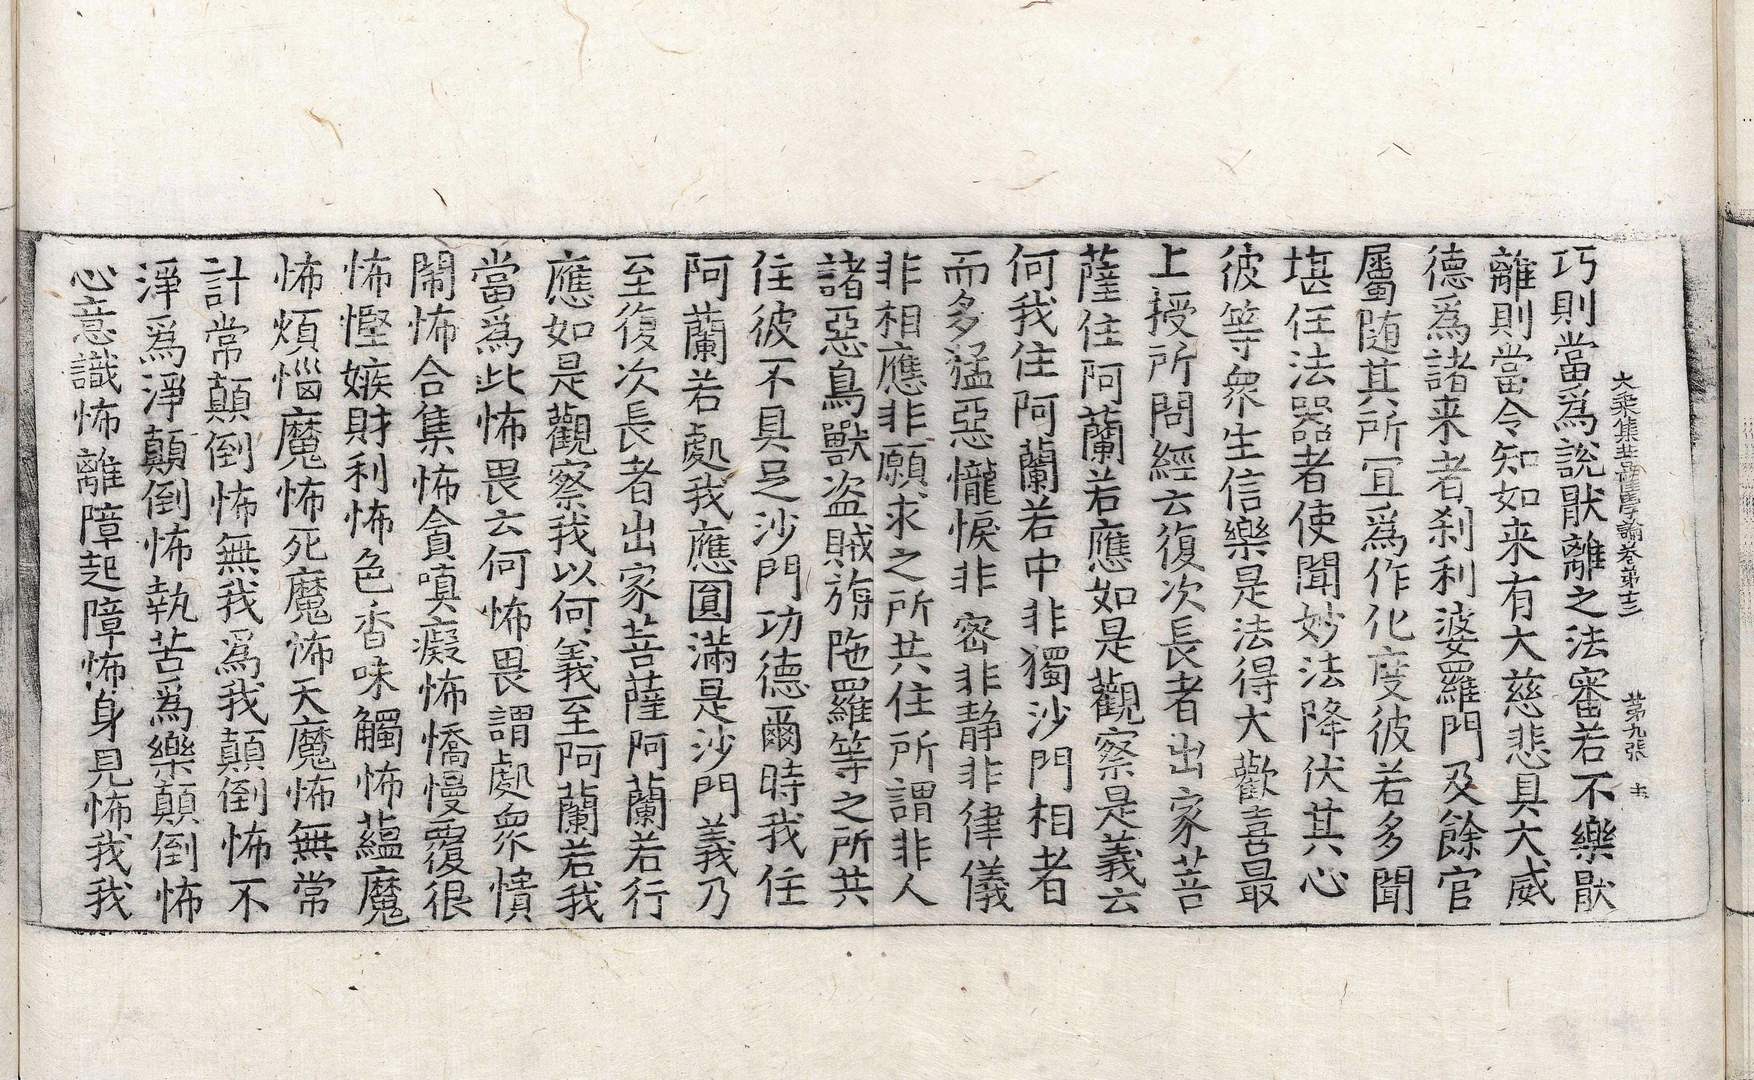 大乘集菩薩學論卷第十三　第九張　士
巧則當爲說猒離之法審若不樂猒
離則當令知如来有大慈悲具大威
德爲諸来者刹利婆羅門及餘官
屬随其所冝爲作化度彼若多聞
堪任法器者使聞妙法降伏其心
彼等衆生信樂是法得大歡喜最
上授所問經云復次長者出家菩
薩住阿蘭若應如是觀察是義云
何我住阿蘭若中非獨沙門相者
而多猛惡㦬悷非密非静非律儀
非相應非願求之所共住所謂非人
諸惡鳥獸盗賊旃陁羅等之所共
住彼不具足沙門功德爾時我住
阿蘭若處我應圓滿是沙門義乃
至復次長者出家菩薩阿蘭若行
應如是觀察我以何義至阿蘭若我
當爲此怖畏云何怖畏謂處衆憒
鬧怖合集怖貪嗔癡怖憍慢覆很
怖慳嫉財利怖色香味觸怖蘊魔
怖煩惱魔怖死魔怖天魔怖無常
計常顛倒怖無我爲我顛倒怖不
淨爲淨顛倒怖執苦爲樂顛倒怖
心意識怖離障起障怖身見怖我我